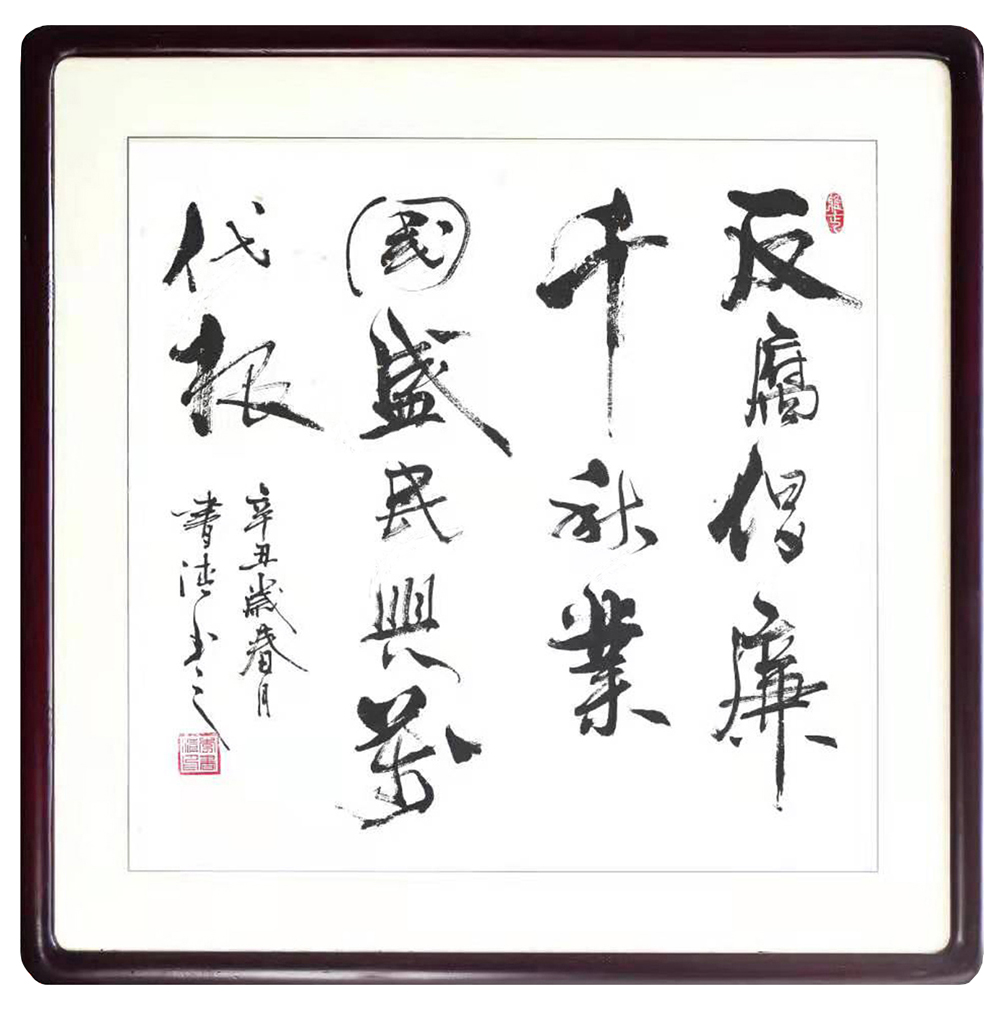 反腐倡廉
千秋業
國盛民興萬
代根
辛丑歲春月
書德書之